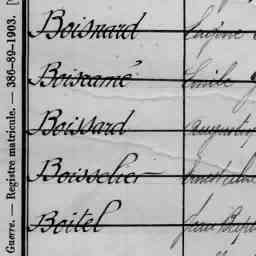 Boisnard Eugène
Boisramé Emile
Boissard Auguste
Boisselier
Boitel Jean Bapt
Guerre. — Registre matricule. — 386-89-1903.